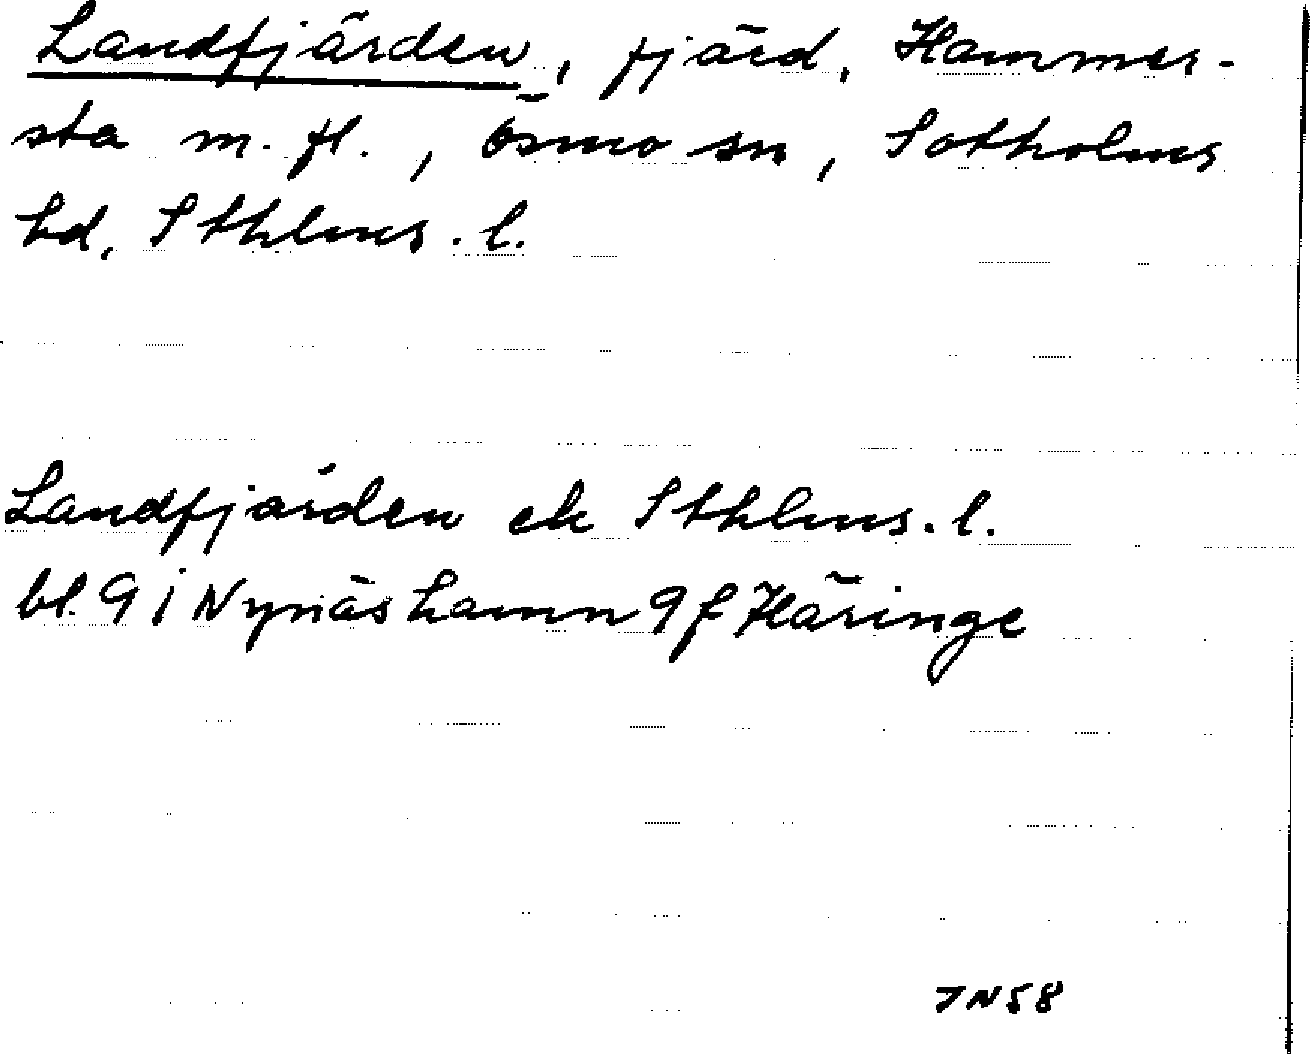 Landfjärden, fjärd, Hammer-
sta m. fl., Ösmo sn, Sotholms
hd, Sthlms. l.
Landfjärden ek Sthlms. l.
bl. 9 i Nynäshamn 9 f Häringe
JN58